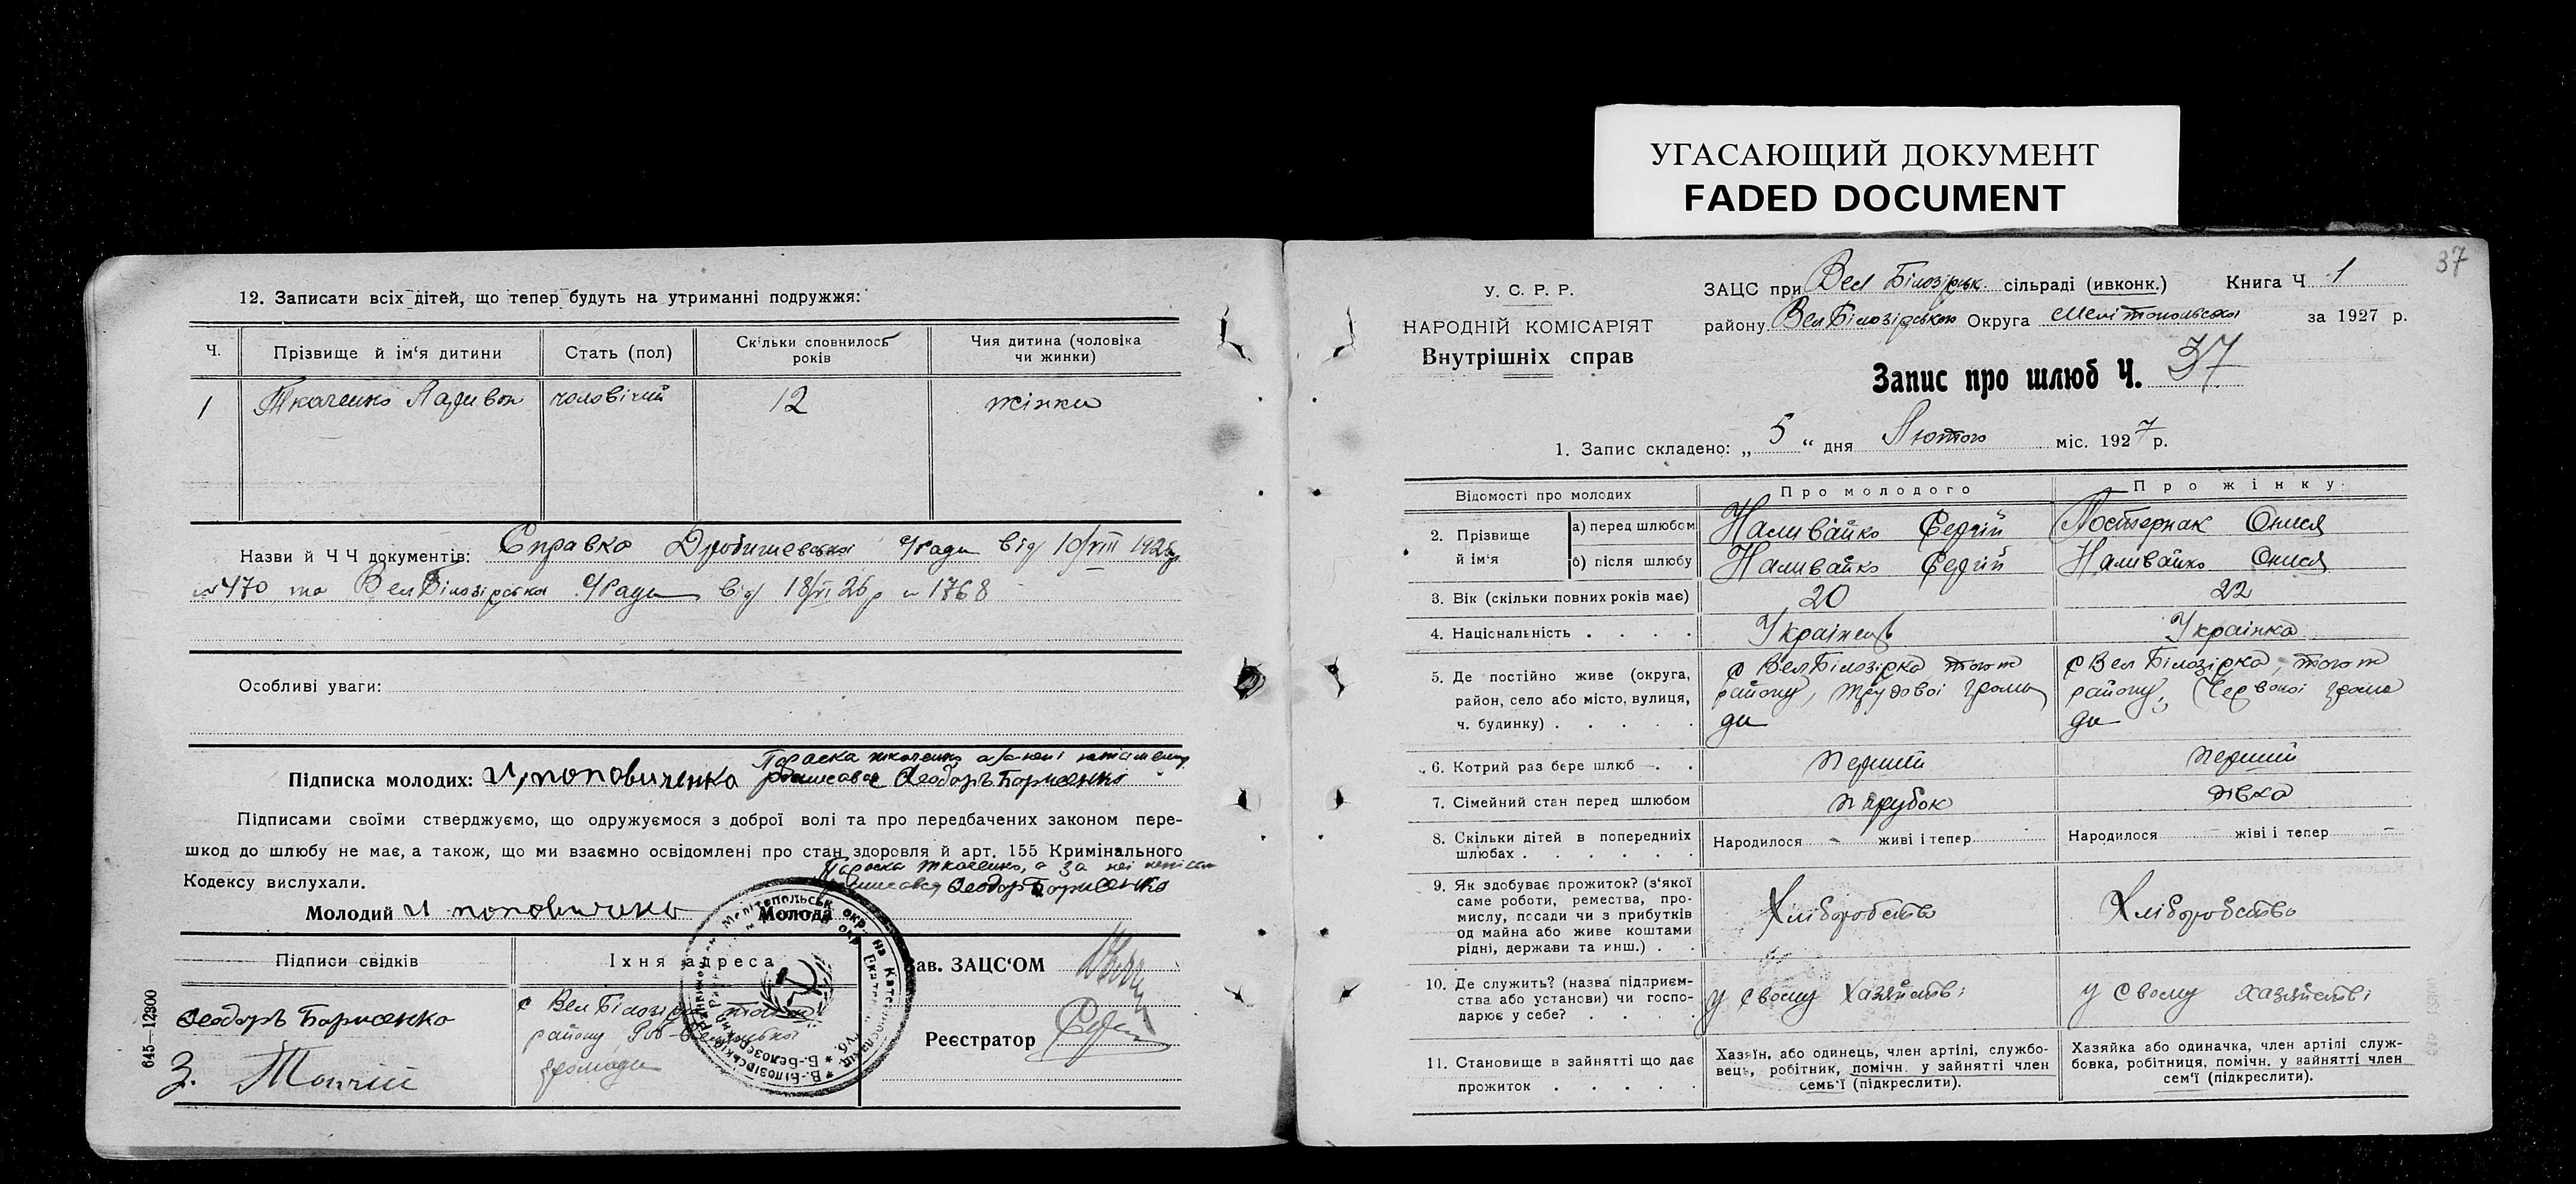 УГАСАЮЩИЙ ДОКУМЕНТ
FADED DOCUMENT
12. Записати всіх дітей, що тепер будуть на утриманні подружжя:
Ч.
Прізвище й ім'я дитини
Стать (пол)
Скільки сповнилось
років
Чия дитина (чоловіка
чи жинки)
1
Ткаченко Ларивон
чоловічий
12
жінки
Назви й Ч Ч документів: Справка Дробишевської с/ради від 10/VIII 1926р
№470 та ВелБілозірська с/ради від 18/VI 26р № 1768
Особливі уваги:
Параска Ткаченко а за неї
Підписка молодих: И, поповиченко росписався Феодоръ Борисенко
Підписами своїми стверджуємо, що одружуємося з доброї волі та про передбачених законом пере-
шкод до шлюбу не має, а також, що ми взаємно освідомлені про стан здоровля й арт. 155 Кримінального
Кодексу вислухали.
Параска Ткаченко, а за неї
Феодоръ Борисенко
Молодий И поповиченко
Молода
Підписи свідків
Їхня адреса
Зав. ЗАЦС'ОМ
Феодоръ Борисенко
с Вел Білозірка того ж
району
громади
Реєстратор
645—12300
37
У. С. Р. Р.
НАРОДНІЙ КОМІСАРІЯТ
Внутрішніх справ
ЗАЦС при Вел Білозірськ. сільраді (ивконк.) Книга Ч 1
району ВелБілозірською Округа Мелітопольської за 1927 р.
Запис про шлюб Ч. 37
1. Запис складено: „ 5 “ дня Лютого міс. 1927 р.
Відомості про молодих
Про молодого
Про жінку
2. Прізвище
й ім'я
а) перед шлюбом
Наливайко Сергій
Постернак Онися
б) після шлюбу
Наливайко Сергій
Наливайко Онися
3. Вік (скільки повних років має)
20
22
4. Національність . . . .
Українець
Українка
5. Де постійно живе (округа,
район, село або місто, вулиця,
ч. будинку) . . . . .
с ВелБілозірка того ж
району, Трудової грома
ди
с Вел Білозірка, того ж
району, Червоної грома
ди
6. Котрий раз бере шлюб . .
перший
перший
7. Сімейний стан перед шлюбом
парубок
дівка
8. Скільки дітей в попередніх
шлюбах . . . . . .
Народилося - живі і тепер
Народилося живі і тепер -
9. Як здобуває прожиток? (з'якої
саме роботи, ремества, про-
мислу, посади чи з прибутків
од майна або живе коштами
рідні, держави та инш.) . .
Хліборобство
Хліборобство
10. Де служить? (назва підприєм-
ства або установи) чи госпо-
дарює у себе? . . . .
у своєму хазяйстві
у своєму хазяйстві
11. Становище в зайнятті що дає
прожиток . . . . .
Хазяїн, або одинець, член артілі, службо-
вець, робітник, помічн. у зайнятті член
семь'ї (підкреслити).
Хазяйка або одиначка, член артілі служ-
бовка, робітниця, помічн. у зайнятті член
сем'ї (підкреслити).